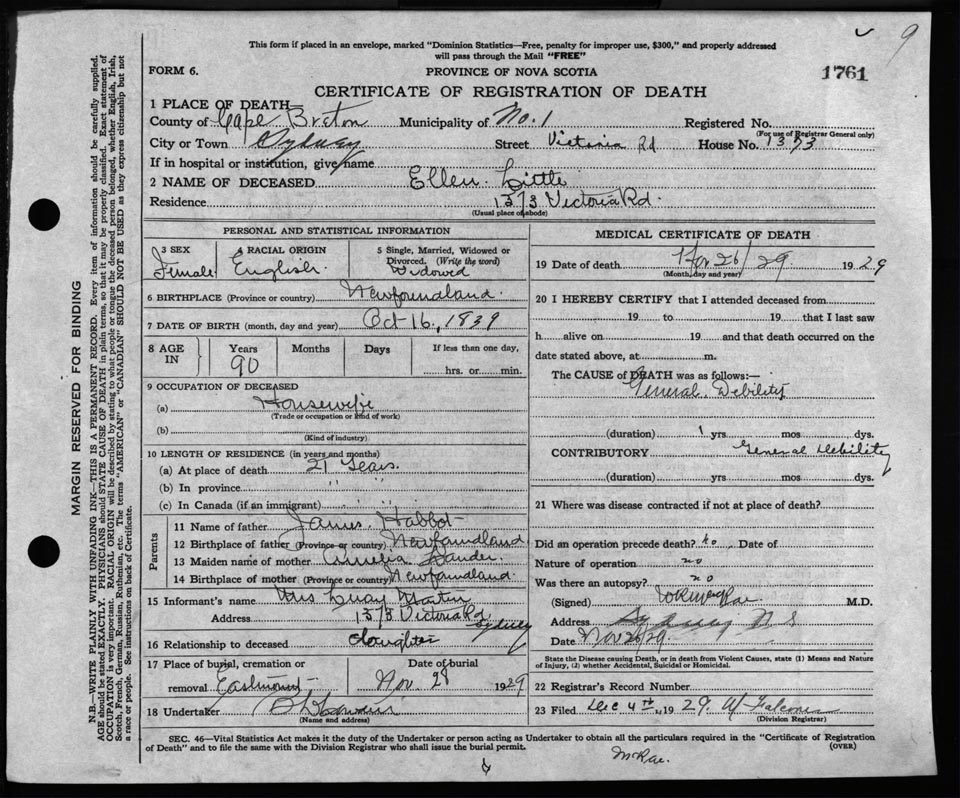 9
This form if placed in an envelope, marked "Dominion Statistics—Free, penalty for improper use, $300," and properly addressed
will pass through the Mail "FREE"
FORM 6.
PROVINCE OF NOVA SCOTIA
1761
CERTIFICATE OF REGISTRATION OF DEATH
1 PLACE OF DEATH
County of Cape Breton Municipality of No. 1 Registered No.
(For use of Registrar General only)
City or Town Sydney Street Victoria Rd House No. 1373
If in hospital or institution, give name
2 NAME OF DECEASED Ellen Little
Residence 1373 Victoria Rd.
(Usual place of abode)
PERSONAL AND STATISTICAL INFORMATION
3 SEX Female
4 RACIAL ORIGIN English
5 Single, Married, Widowed or
Divorced. (Write the word)
Widowed
6 BIRTHPLACE (Province or country) Newfoundland
7 DATE OF BIRTH (month, day and year) Oct 16, 1839
8 AGE IN
Years Months Days If less than one day,
90 hrs. or min.
9 OCCUPATION OF DECEASED
(a) Housewife
(Trade or occupation or kind of work)
(b)
(Kind of industry)
10 LENGTH OF RESIDENCE (in years and months)
(a) At place of death 21 Years.
(b) In province " "
(c) In Canada (if an immigrant) " "
Parents
11 Name of father James
12 Birthplace of father (Province or country) Newfoundland
13 Maiden name of mother
14 Birthplace of mother (Province or country) Newfoundland
15 Informant's name Mrs Martin
Address 1373 Victoria Rd Sydney
16 Relationship to deceased daughter
17 Place of burial, cremation or Date of burial
removal Eastmount Nov. 28 1929
18 Undertaker
(Name and address)
MEDICAL CERTIFICATE OF DEATH
19 Date of death Nov 26/29 1929
(Month, day and year)
20 I HEREBY CERTIFY that I attended deceased from
19 to 19 that I last saw
h alive on 19 and that death occurred on the
date stated above, at m.
The CAUSE of DEATH was as follows:—
General Debility
(duration) 1 yrs mos dys.
CONTRIBUTORY General Debility
(duration) yrs mos dys.
21 Where was disease contracted if not at place of death?
Did an operation precede death? no Date of
Nature of operation no
Was there an autopsy? no
(Signed) M.D.
Address Sydney N S
Date Nov 26/29
State the Disease causing Death, or in death from Violent Causes, state (1) Means and Nature
of Injury, (2) whether Accidental, Suicidal or Homicidal.
22 Registrar's Record Number
23 Filed Dec 4th, 1929
(Division Registrar)
SEC. 46—Vital Statistics Act makes it the duty of the Undertaker or person acting as Undertaker to obtain all the particulars required in the "Certificate of Registration
of Death" and to file the same with the Division Registrar who shall issue the burial permit.
(OVER)
McRae.
MARGIN RESERVED FOR BINDING
N.B.—WRITE PLAINLY WITH UNFADING INK—THIS IS A PERMANENT RECORD. Every item of information should be carefully supplied.
AGE should be stated EXACTLY. PHYSICIANS should STATE CAUSE OF DEATH in plain terms, so that it may be properly classified. Exact statement of
OCCUPATION is very important. RACIAL ORIGIN will be described by stating to what people or tongue the deceased person belonged, whether English, Irish,
Scotch, French, German, Russian, Ruthenian, etc. The terms "AMERICAN" or "CANADIAN" SHOULD NOT BE USED as they express citizenship but not
a race or people. See instructions on back of Certificate.